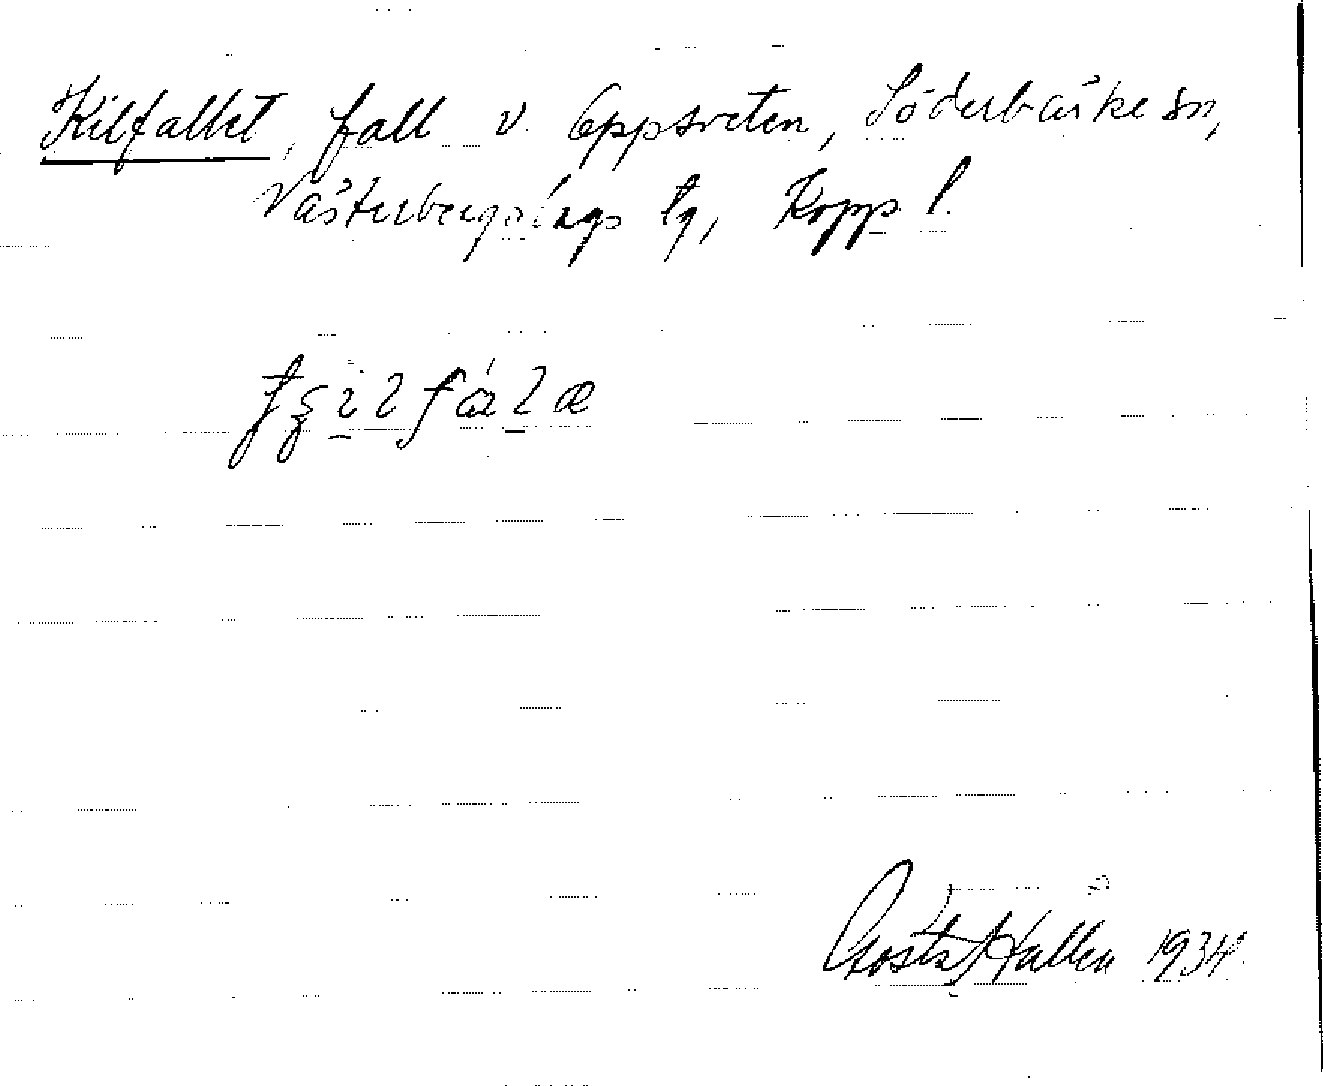 Kilfallet, fall v. Oppsveten, Söderbärke sn,
Västerbergslags tg, Kopp. l.
Gösta Hallén 1934.